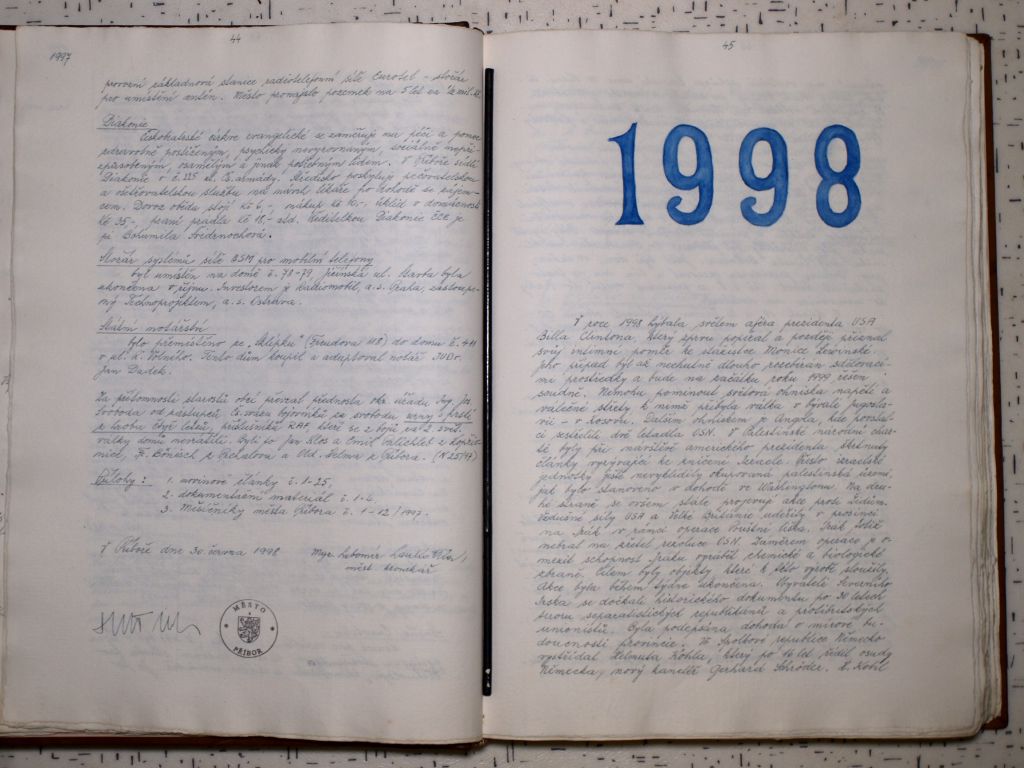 44
1997
provozní základnová stanice radiotelefonní sítě Eurotel - stožár
pro umístění antén. Město pronajalo pozemek na 5 let za
Diakonie
Českobratrské církve evangelické se zaměřuje na péči a pomoc
zdravotně postiženým, psychicky nevyrovnaným, sociálně nepři-
způsobeným, osamělým a jinak potřebným lidem. V Příboře sídlí
Diakonie v č. 225 ul. Čs. armády. Středisko poskytuje pečovatelskou
a ošetřovatelskou službu na návrh lékaře po dohodě se zájem-
cem. Dovoz obědu stojí Kč 6,-, nákup Kč 10,-, úklid v domácnosti
Kč 35,-, praní prádla Kč 18,- atd. Ředitelkou Diakonie ČCE je
pí Bohumila
Stožár systému sítě GSM pro mobilní telefony
byl umístěn na domě č. 78-79, Jičínská ul. Stavba byla
ukončena v říjnu. Investorem je Radiomobil, a.s. Praha, zastoupe-
ný Technoprojektem, a.s. Ostrava.
Státní notářství
bylo přemístěno ze "sklípku" (Freudova 118) do domu č. 411
v ul. K. Tento dům koupil a adaptoval notář JUDr.
Jan Dudek.
Za přítomnosti starostů obcí převzal přednosta okr. úřadu Ing. Jos.
Svoboda od zástupců Čs. svazu bojovníků za svobodu urny s prstí
z hrobů čtyř letců, příslušníků RAF, kteří se z bojů za 2. svět.
války domů nevrátili. Byli to Jan Klos a Emil z Kopřiv-
nice, Fr. Bönisch z a Old. Helma z Příbora. (N 25/97)
Přílohy: 1. novinové články č. 1-25,
2. dokumentační materiál č. 1-6,
3. Měsíčníky města Příbora č. 1-12/1997.
V Příboře dne 30. června 1998 Mgr. Lubomír
měst. kronikář
MĚSTO
PŘÍBOR
45
1998
V roce 1998 hýbala světem aféra prezidenta USA
Billa Clintona, který zprvu popíral a později přiznal
svůj intimní poměr ke stážistce Monice Lewinské.
Jeho případ byl až nechutně dlouho rozebírán sdělovací-
mi prostředky a bude na začátku roku 1999 řešen
soudně. Nemohu pominout světová ohniska napětí a
válečné střety, k nimž přibyla válka v bývalé Jugoslá-
vii - v Kosovu. Dalším ohniskem je Angola, kde povstal-
ci sestřelili dvě letadla OSN. V Palestinské národní chartě
byly při návštěvě amerického prezidenta škrtnuty
články vyzývající ke zničení Izraele. Přesto izraelské
jednotky ještě nevyklidily okupovaná palestinská území,
jak bylo stanoveno v dohodě ve Washingtonu. Na dru-
hé straně se ovšem stále projevují akce proti Židům.
Vojenské síly USA a Velké Británie udeřily v prosinci
na Irák v rámci operace Pouštní liška. Irák totiž
nebral na zřetel rezoluce OSN. Záměrem operace je o-
mezit schopnost Iráku vyrábět chemické a biologické
zbraně. Cílem byly objekty, které k této výrobě sloužily.
Akce byla během týdne ukončena. Obyvatelé Severního
Irska se dočkali historického dokumentu po 30 letech
teroru separatistických republikánů a protibritských
unionistů. Byla podepsána dohoda o mírové bu-
doucnosti provincie. Ve Spolkové republice Německo
vystřídal Helmuta Kohla, který po 16 let řídil osudy
Německa, nový kancléř Gerhard Schröder. H. Kohl